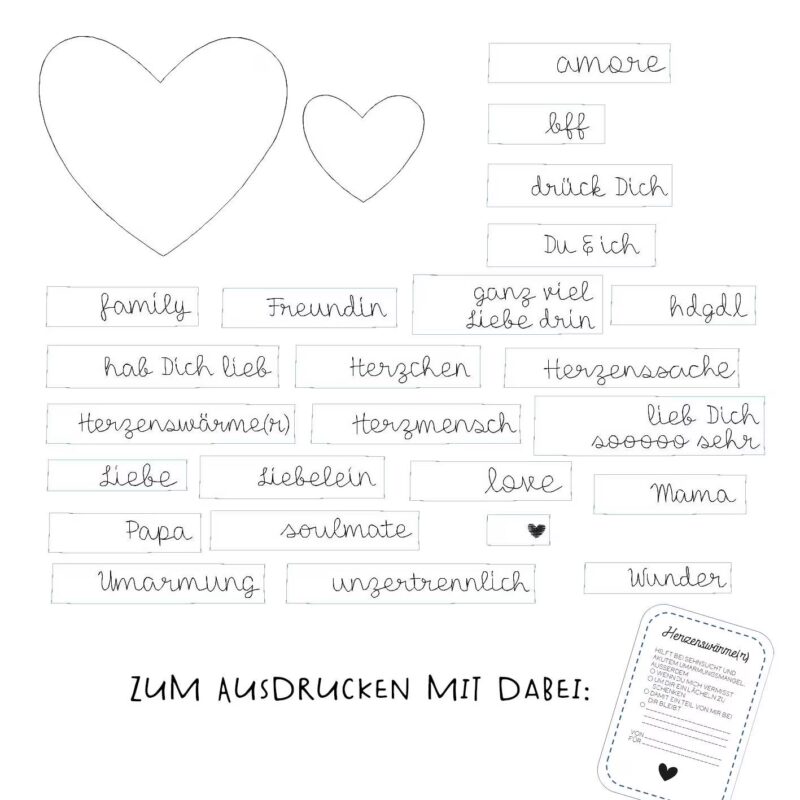 amore
bff
drück Dich
Du & ich
family
Freundin
ganz viel
Liebe drin
hdgdl
hab Dich lieb
Herzchen
Herzenssache
Herzenswärme(r)
Herzmensch
lieb Dich
sooooo sehr
Liebe
Liebelein
love
Mama
Papa
soulmate
Umarmung
unzertrennlich
Wunder
ZUM AUSDRUCKEN MIT DABEI:
Herzenswärme(r)
HILFT BEI SEHNSUCHT UND
AKUTEM UMARMUNGSMANGEL,
AUSSERDEM
WENN DU MICH VERMISST
UM DIR EIN LÄCHELN ZU
SCHENKEN
DAMIT EIN TEIL VON MIR BEI
DIR BLEIBT
VON
FÜR